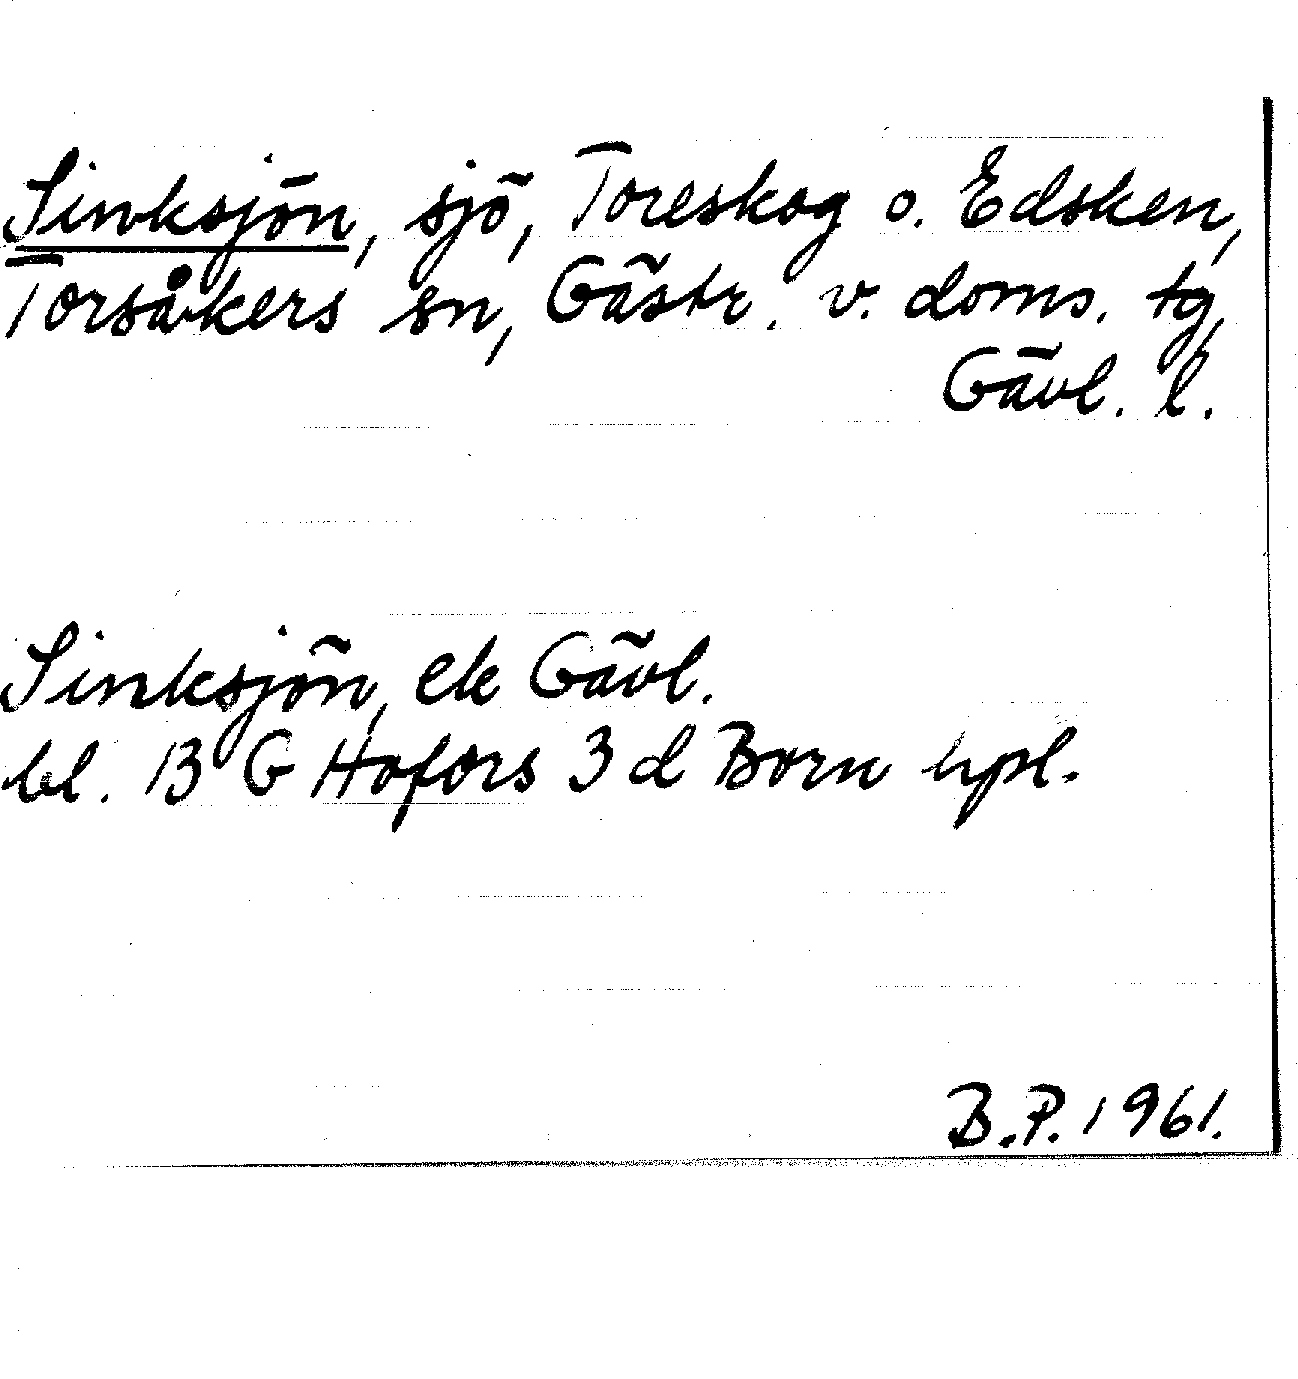 Sinksjön, sjö, Toreskog o. Edsken,
Torsåkers sn, Gästr. v. doms. tg,
Gävl. l.
Sinksjön, ek Gävl.
bl. 13 G Hofors 3 d Born hpl.
B.P. 1961.